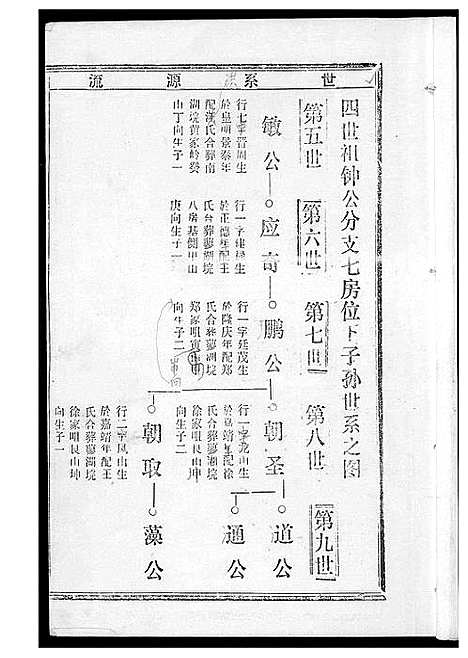 世系源流
四世祖钟公分支七房位下子孙世系之图
第五世
第六世
第七世
第八世
第九世
敏公
应奇
鹏公
朝圣
道公
通公
朝取
藻公
行七字晋周生
於皇明景泰年
配汪氏合葬南
湖垸黄家岭癸
山丁向生子一
行一字建候生
於正德年配王
氏合葬蓼湖垸
八房基侧甲山
庚向生子一
行一字廷茂生
於隆庆年配郑
氏合葬蓼湖垸
郑家咀寅
向生子二
行一字龙山生
於嘉靖年配徐
氏合葬蓼湖垸
徐家咀艮山坤
向生子二
行二字凤山生
於嘉靖年配王
氏合葬蓼湖垸
徐家咀艮山坤
向生子一